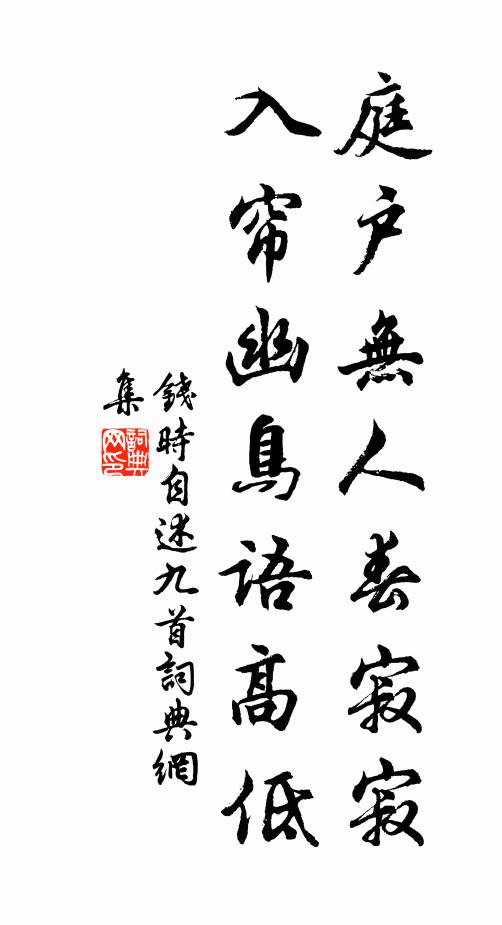 庭戶無人春寂寂
入帘幽鳥語高低
錢時自述九首詞典網
集
詞典
网印